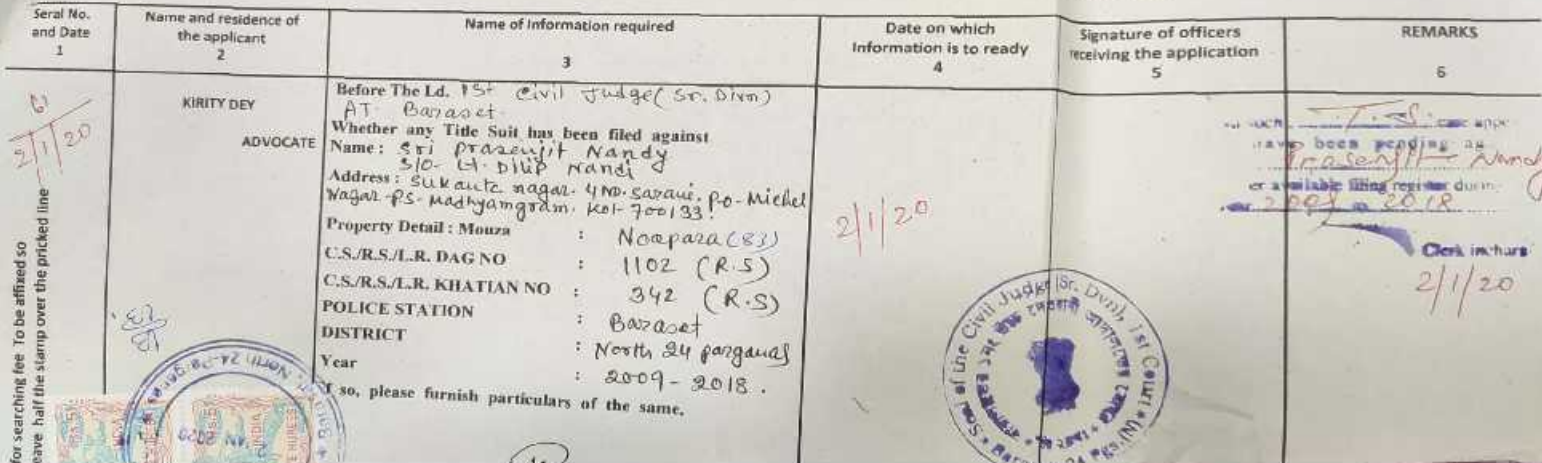 Seral No. and Date
1
Name and residence of the applicant
2
Name of Information required
3
Date on which Information is to ready
4
Signature of officers receiving the application
5
REMARKS
6
2/1/20
KIRITY DEY
ADVOCATE
Before The Ld. 1st Civil Judge (Sr. Divn)
AT- Baraset.
Whether any Title Suit has been filed against
Name : Sri Prasenjit Nandy
S/O- Lt. Dilip Nandi
Address : Sukanta nagar. 4 no. sarani. P.O- Michel
Nagar - P.S- Madhyamgram. Kol- 700133.
Property Detail : Mouza : Noapara (83)
C.S./R.S./L.R. DAG NO : 1102 (R.S)
C.S./R.S./L.R. KHATIAN NO : 342 (R.S)
POLICE STATION : Baraset
DISTRICT : North 24 parganas
Year : 2009 - 2018 .
If so, please furnish particulars of the same.
2/1/20
T.S. case
been pending as
Prasenjit Nandy
er available filing register
2018
Clerk
2/1/20
Seal of the Civil Judge (Sr. Dvn), 1st Court
for searching fee To be affixed so
eave half the stamp over the pricked line